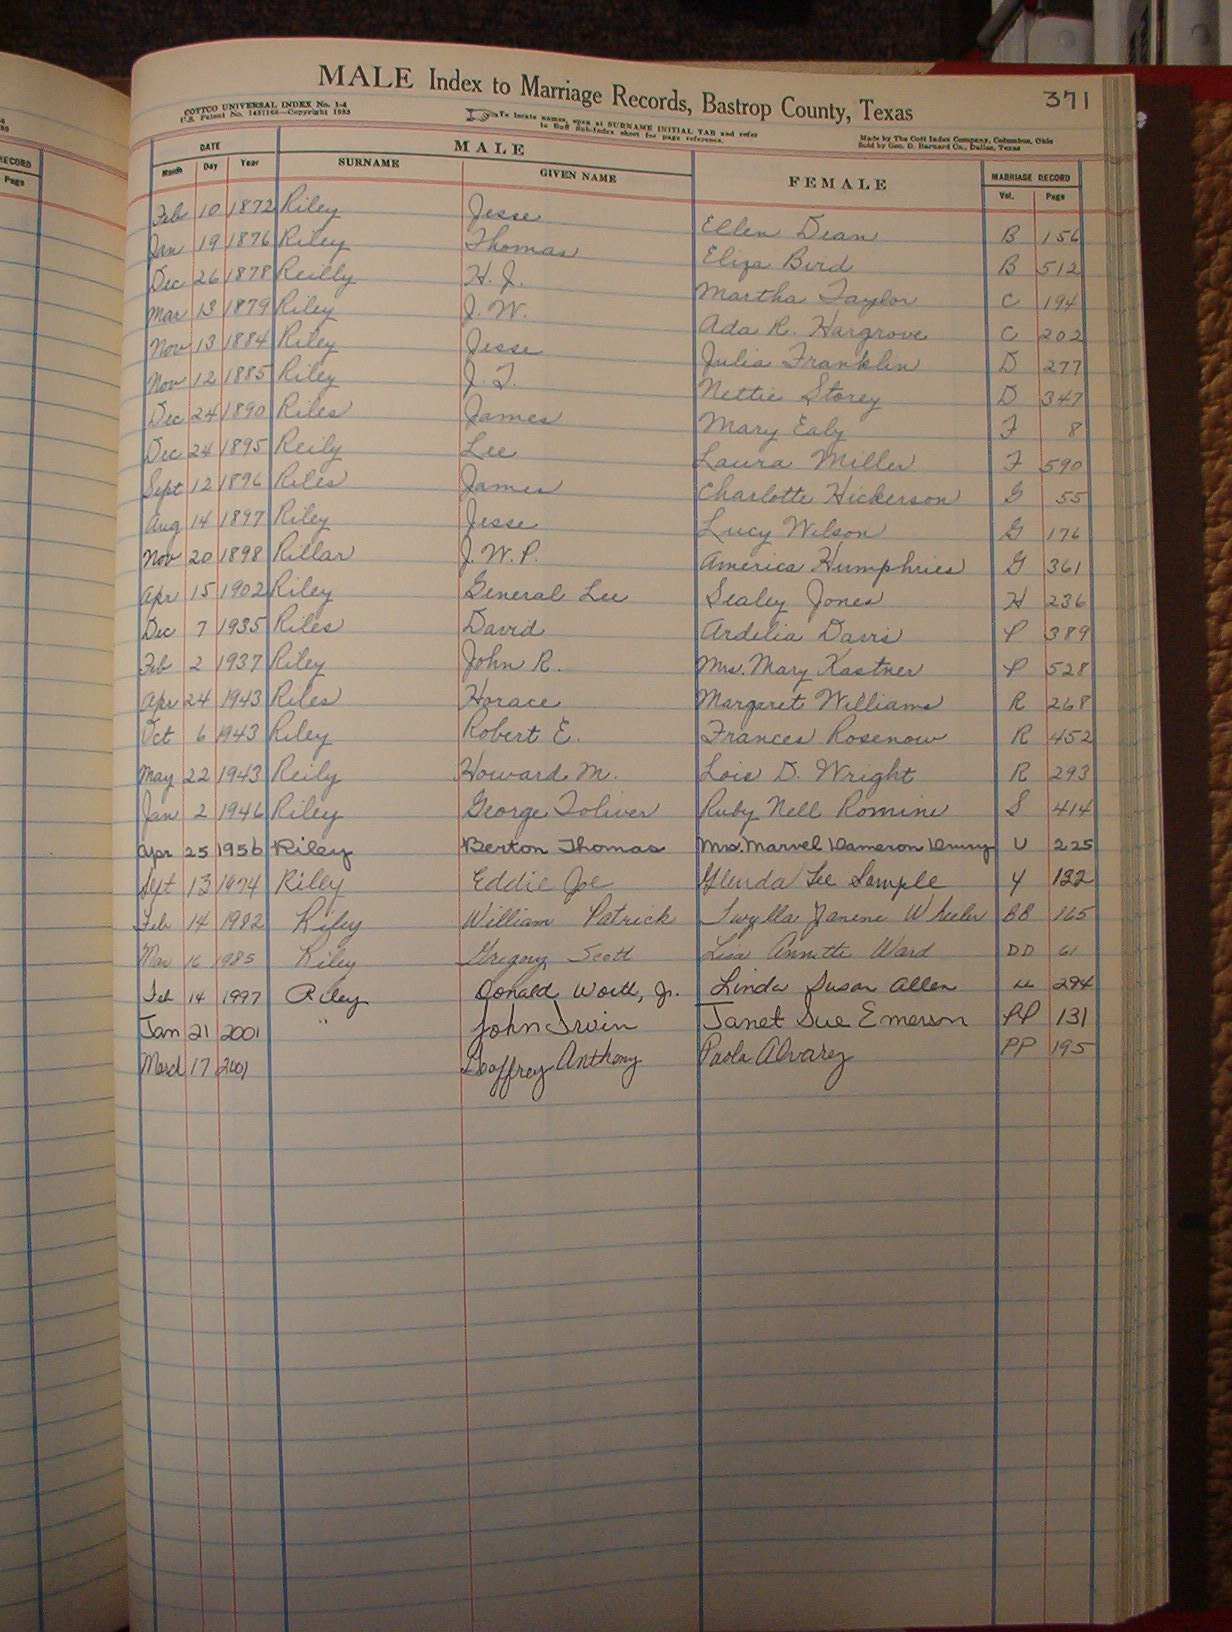 MALE Index to Marriage Records, Bastrop County, Texas 371
COTTCO UNIVERSAL INDEX No. 1-4
U.S. Patent No. 1431164—Copyright 1935
To locate names, open at SURNAME INITIAL TAB and refer
to Buff Sub-Index sheet for page reference.
Made by The Cott Index Company, Columbus, Ohio
Sold by Geo. D. Barnard Co., Dallas, Texas
DATE MALE FEMALE MARRIAGE RECORD
Month Day Year SURNAME GIVEN NAME Vol. Page
RECORD
Page
Feb 10 1872 Riley Jesse Ellen Dean B 156
Jan 19 1876 Riley Thomas Eliza Bird B 512
Dec 26 1878 Reilly H. J. Martha Taylor C 194
Mar 13 1879 Riley J. W. Ada R. Hargrove C 202
Nov 13 1884 Riley Jesse Julia Franklin D 277
Nov 12 1885 Riley J. T. Nettie Storey D 347
Dec 24 1890 Riles James Mary Ealy F 8
Dec 24 1895 Reily Lee Laura Miller F 590
Sept 12 1896 Riles James Charlotte Hickerson G 55
Aug 14 1897 Riley Jesse Lucy Wilson G 176
Nov 20 1898 Rillar J. W. P. America Humphries G 361
Apr 15 1902 Riley General Lee Sealey Jones H 236
Dec 7 1935 Riles David Ardelia Davis P 389
Feb 2 1937 Riley John R. Mrs. Mary Kastner P 528
Apr 24 1943 Riles Horace Margaret Williams R 268
Oct 6 1943 Riley Robert E. Frances Rosenow R 452
May 22 1943 Reily Howard M. Lois D. Wright R 293
Jan 2 1946 Riley George Toliver Ruby Nell Romine S 414
Apr 25 1956 Riley Berton Thomas Mrs. Marvel Dameron Drury U 225
Sept 13 1974 Riley Eddie Joe Glenda Lee Sample Y 122
Feb 14 1982 Riley William Patrick Twylla Janene Wheeler BB 165
Mar 16 1985 Riley Gregory Scott Lisa Annette Ward DD 61
Feb 14 1997 Riley Donald Jr. Linda Susan Allen LL 294
Jan 21 2001 " John Irvin Janet Sue Emerson PP 131
March 17 2001 Geoffrey Anthony Paola Alvarez PP 195